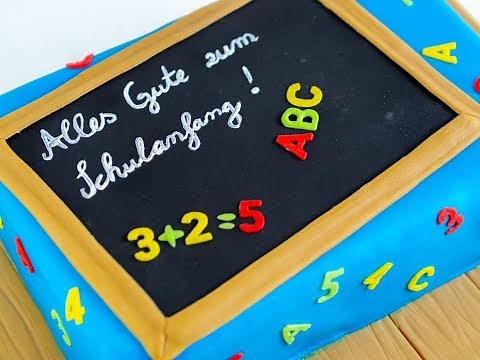 Alles Gute zum
Schulanfang !
ABC
3+2=5
A
3
C
1
5
A
3
4
1